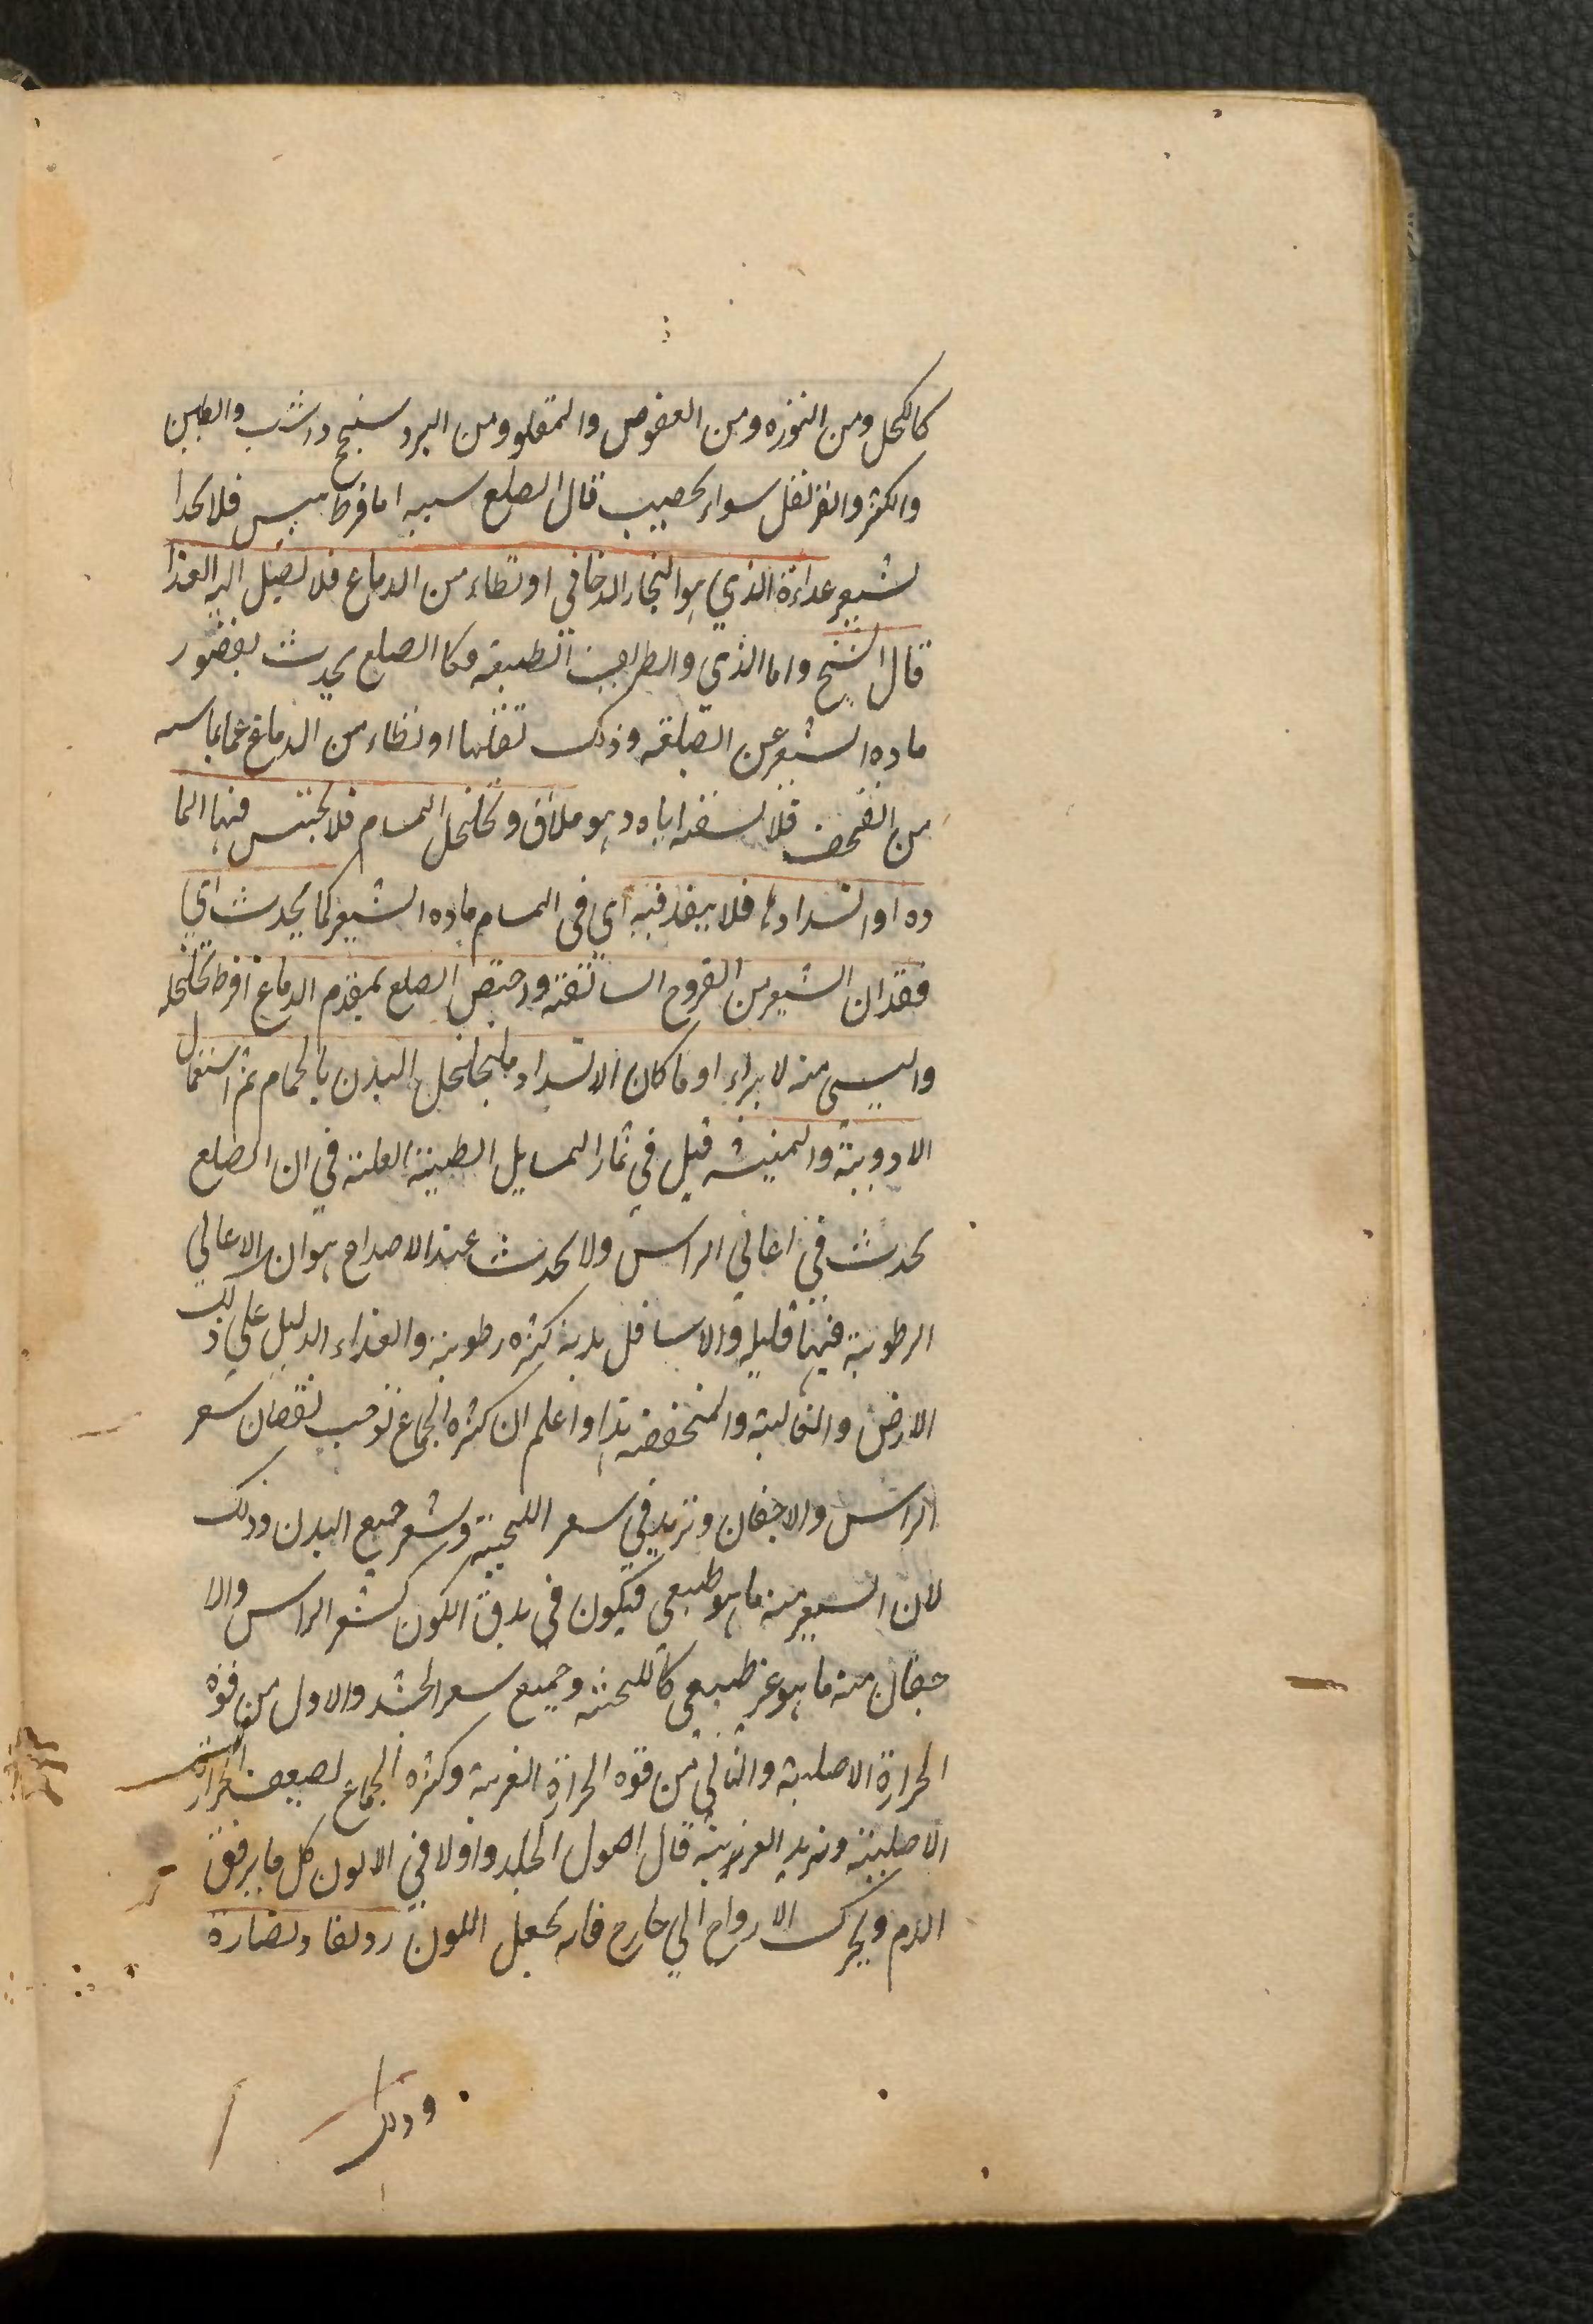 كالكحل ومن النوره ومن العفوص والمقلو ومن البرد سنج والشب والطين
والكثر والقرنفل سواء يخضب قال الصلع سببه اما فرط يبس فلا يجد ا
لشعر غداءة الذي هو البخار الدخاني او تطاء من الدماع فلا يصل اليه الغذا
قال الشيخ واما الذي والطريف الطبيقه فكا الصلع يحدث بقصور
ماده الشعر عن الصلعه وذلك تقلها او تطاء من الدماغ عما يماسه
من القحف فلا يسقيه اياه وهو ملاق وتخلخل المسام فلا يحتبس فيها الما
ده او انسدادها فلا ينفذ فيه اي في المسام ماده الشعر كما يحدث اي
فقدان الشعر من القروح السالفة واختص الصلع بمقدم الدماغ افرط تخلخله
واليبسي منه لا يبراء او ما كان لانسداد ما يخلخل البدن بالحمام ثم استعمال
الادوية والمنبته قيل في ثمار المسايل الطبية العلة في ان الصلع
يحدث في اعالي الراس ولا يحدث عند الاصداع هو ان الاعالي
الرطوبة فيها قليله والاسافل بدية كثره رطوبة والغذاء الدليل علي ذلك
الارض والعالية والمنخفضه بدا واعلم ان كثره الجماع توجب نقصان شعر
الراس والاجفان وتزيد في سعر اللحية وشعر جميع البدن وذلك
لان الشعر منه ما هو طبعي فيكون في بدو الكون كشعر الراس والا
جفان منه ما هو غير طبيعي كاللحية وجميع سعر الجسد والاول من قوه
الحرارة الاصلية والثاني من قوه الحرارة الغربية وكثره الجماع لضيعف الحرارة
الاصلية وتزيد الغريزية قال اصول الجلد واولا في الالون كل ما يرقق
الدم ويحرك الارواح الي خارج فانه يجعل اللون رونقا ونضارة
وذلك